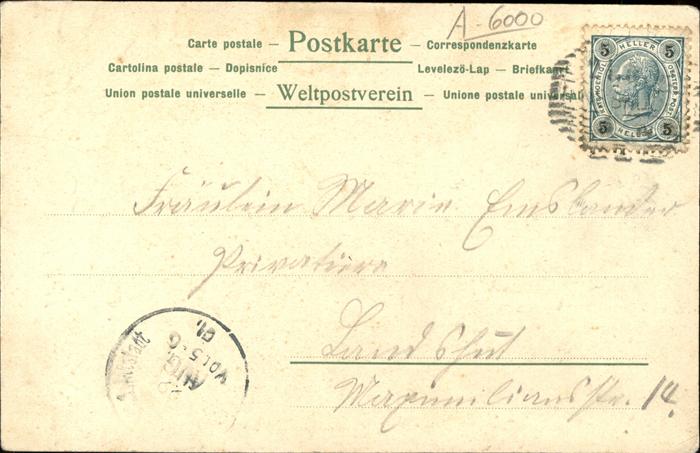 A-6000
Carte postale — Postkarte — Correspondenzkarte
Cartolina postale — Dopisnice Levelező-Lap — Briefkaart
Union postale universelle — Weltpostverein — Unione postale universale
5 HELLER 5
5 HELLER 5
Fräulein Marie Emslander
Privatière
Landshut
Maximilianstr. 14.
AUG.
VOI. 5-6
01.